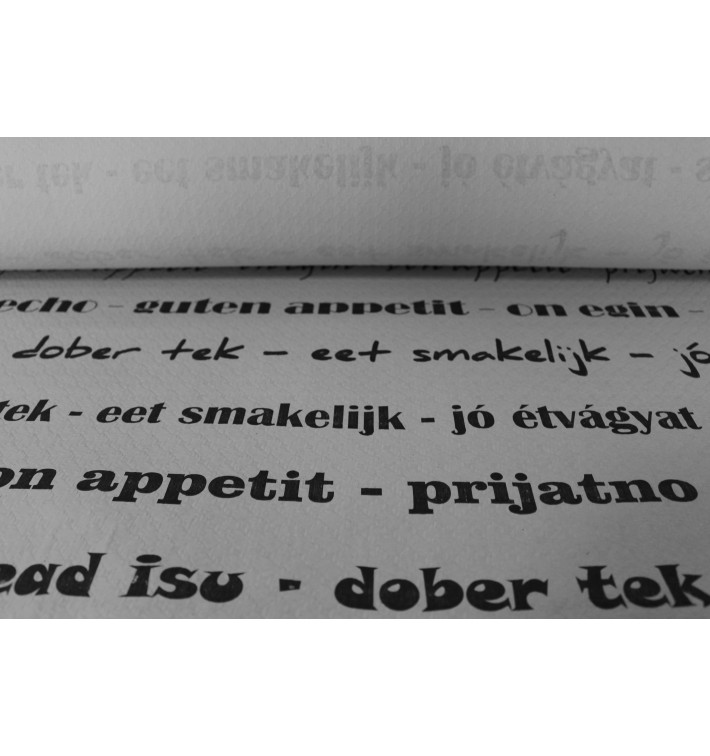 tek - eet smakelijk - jó étvágyat - s
echo - guten appetit - on egin -
dober tek - eet smakelijk - jó
tek - eet smakelijk - jó étvágyat
on appetit - prijatno
ead isu - dober tek